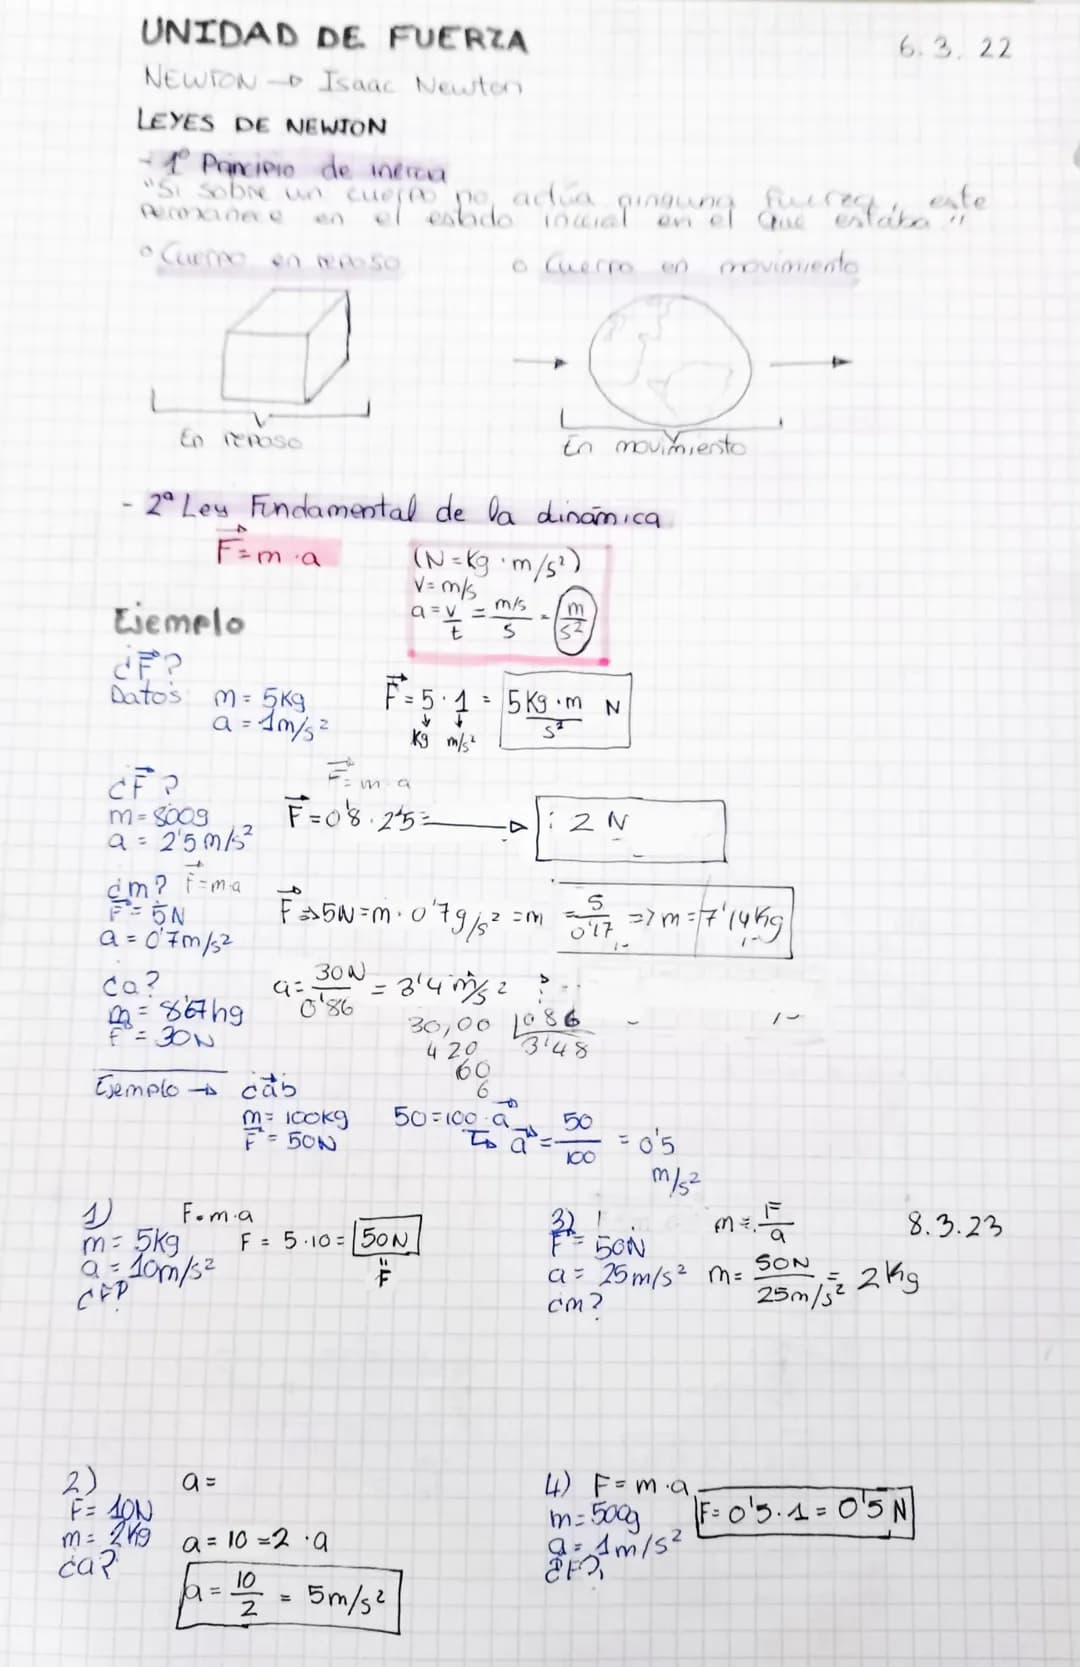 UNIDAD DE FUERZA
6.3.22
NEWTON → Isaac Newton
LEYES DE NEWTON
- 1º Principio de inercia
"Si sobre un cuerpo no actúa ninguna fuerza, este
permanece en el estado inicial en el que estaba"
o Cuerpo en reposo
o Cuerpo en movimiento
En reposo
En movimiento
- 2ª Ley Fundamental de la dinámica
F=m·a
(N=Kg·m/s²)
V=m/s
a=v/t = m/s/s = m/s²
Ejemplo
¿F?
Datos: m=5Kg
a=1m/s²
F=5·1= 5Kg·m/s² N
Kg m/s²
¿F?
F=m·a
m=800g
a=2'5m/s²
F=0'8·2'5= → : 2 N
¿m? F=m·a
F=5N
a=0'7m/s²
F⇒5N=m·0'7g/s²=m =5/0'17 ⇒m=7'14Kg
¿a?
m=8'67hg
F=30N
a=30N/0'86 = 3'4m/s²
30,00 |086
420 3'48
60
6
Ejemplo → ¿a?
m=100kg
F=50N
50=100·a
→ a=50/100 =0'5
m/s²
1) F=m·a
m=5kg
a=10m/s²
¿F?
F=5·10=50N
"
F
3)
F=50N
a=25m/s²
¿m?
m=F/a
m=50N/25m/s²=2Kg
8.3.23
2) a=
F=10N
m=2Kg
¿a?
a=10=2·a
a=10/2=5m/s²
4) F=m·a
m=500g
a=1m/s²
¿F?
F=0'5·1=0'5N